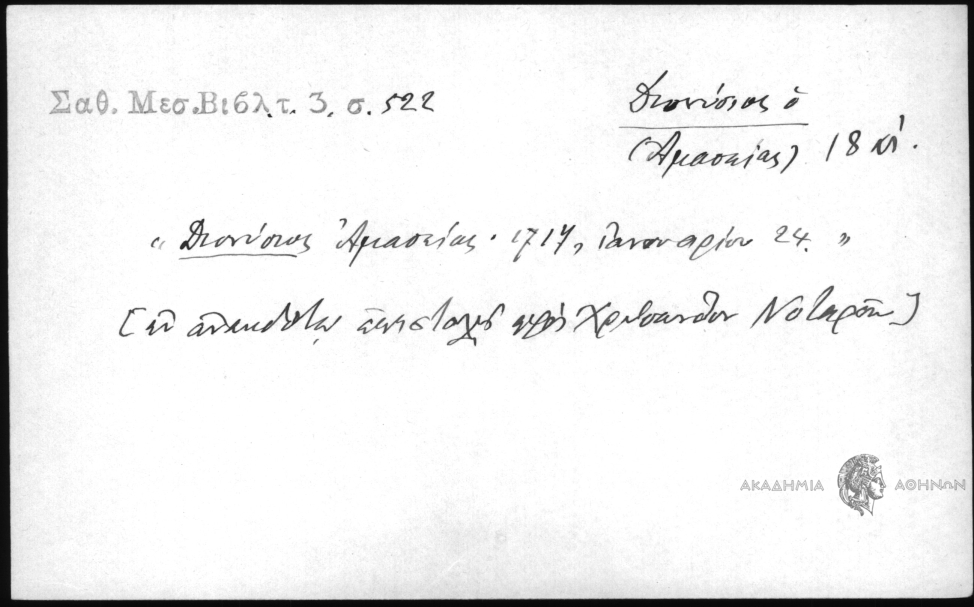 Σαθ. Μεσ. Βιβλ. τ. 3. σ. 522
Διονύσιος ὁ
(Ἀμασείας) 18 αἰ.
"Διονύσιος Ἀμασείας. 1717, Ἰανουαρίου 24."
[ἐν ἀνεκδότῳ ἐπιστολῇ πρὸς Χρύσανθον Νοταρᾶν]
ΑΚΑΔΗΜΙΑ ΑΘΗΝΩΝ